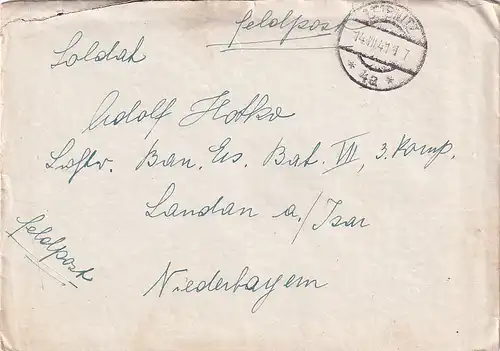 Feldpost
14.III.41
* 4a *
Soldat
Adolf Hotko
Luftw. Bau. Ers. Bat. VII, 3. Komp.
Landau a./Isar
Feldpost
Niederbayern